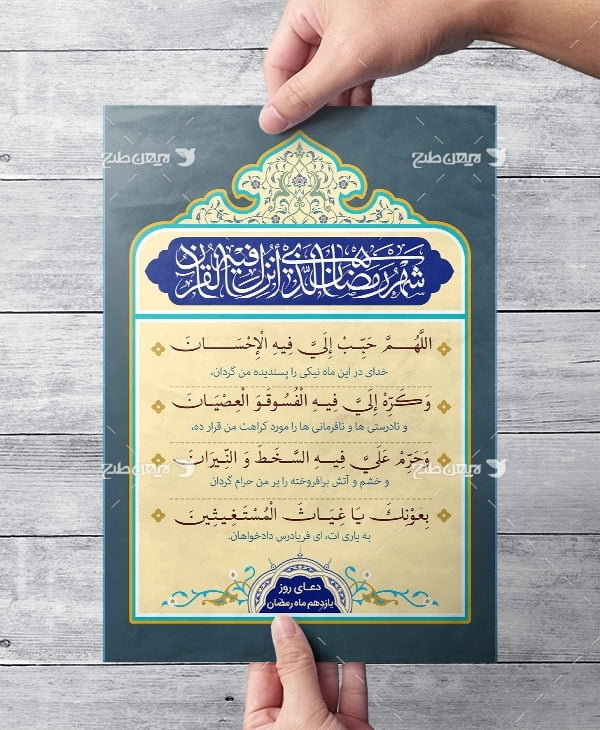 شَهْرُ رَمَضَانَ الَّذِي أُنْزِلَ فِيهِ الْقُرْآنُ
اللَّهُمَّ حَبِّبْ إِلَيَّ فِيهِ الْإِحْسَانَ
خدای در این ماه نیکی را پسندیده من گردان،
وَكَرِّهْ إِلَيَّ فِيهِ الْفُسُوقَوَ الْعِصْيَانَ
و نادرستی ها و نافرمانی ها را مورد کراهت من قرار ده،
وَحَرِّمْ عَلَيَّ فِيهِ السَّخَطَ وَ النِّيرَانَ
و خشم و آتش برافروخته را بر من حرام گردان
بِعَوْنِكَ يَا غِيَاثَ الْمُسْتَغِيثِينَ
به یاری ات، ای فریادرس دادخواهان.
دعای روز
یازدهم ماه رمضان
میهن طرح
میهن طرح
میهن طرح
میهن طرح